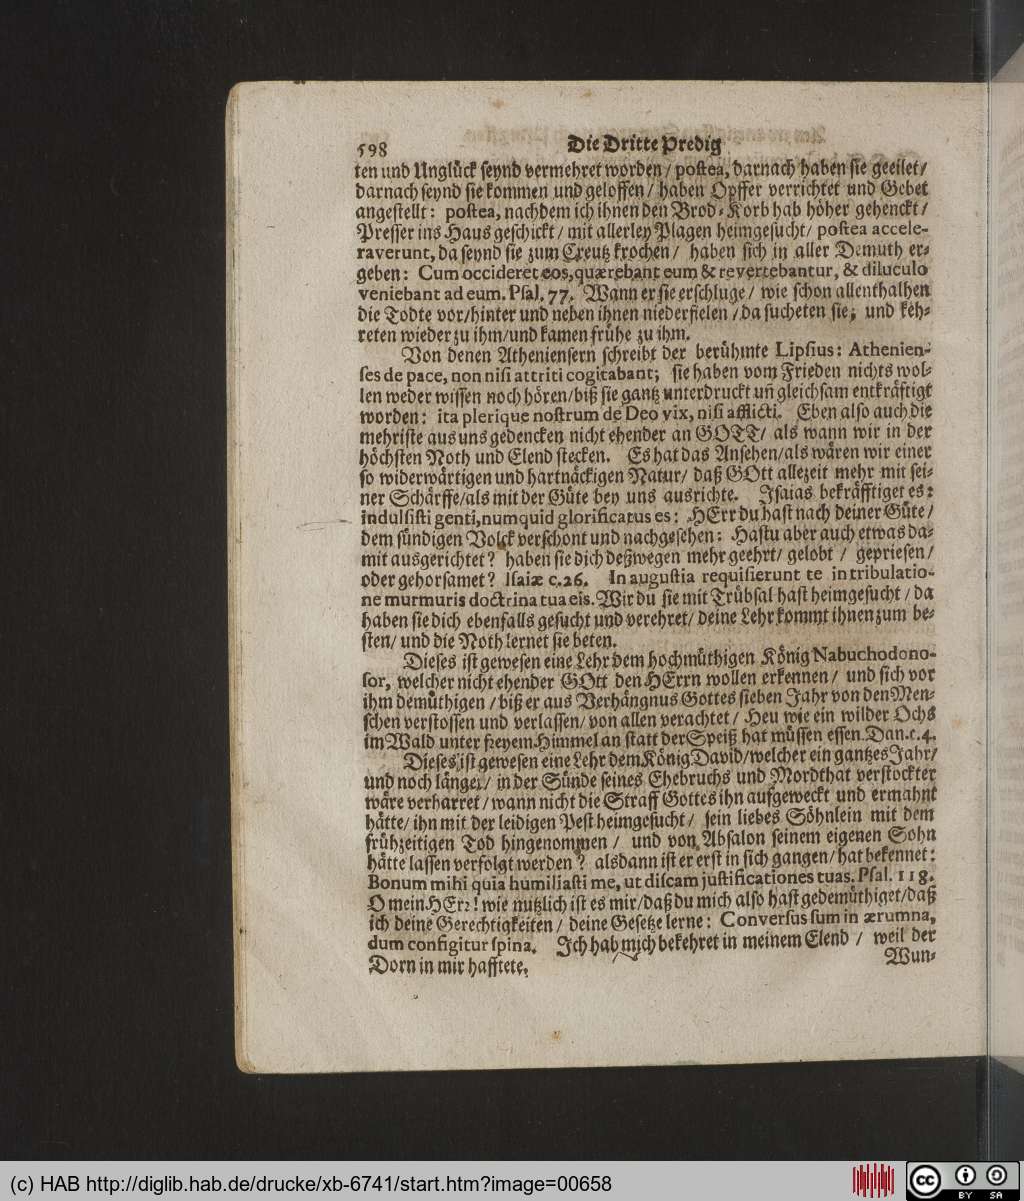 598 Die Dritte Predig
ten und Unglück seynd vermehret worden / postea, darnach haben sie geeilet /
darnach seynd sie kommen und geloffen / haben Opffer verrichtet und Gebet
angestellt: postea, nachdem ich ihnen den Brod-Korb hab höher gehenckt /
Presser ins Haus geschickt / mit allerley Plagen heimgesucht / postea accele-
raverunt, da seynd sie zum Creutz krochen / haben sich in aller Demuth er-
geben: Cum occideret eos, quærebant eum & revertebantur, & diluculo
veniebant ad eum. Psal. 77. Wann er sie erschluge / wie schon allenthalben
die Todte vor / hinter und neben ihnen niederfielen / da sucheten sie; und keh-
reten wieder zu ihm / und kamen frühe zu ihm.
Von denen Atheniensern schreibt der berühmte Lipsius: Athenien-
ses de pace, non nisi attriti cogitabant; sie haben vom Frieden nichts wol-
len weder wissen noch hören / biß sie gantz unterdruckt uñ gleichsam entkräftigt
worden: ita plerique nostrum de Deo vix, nisi afflicti. Eben also auch die
mehriste aus uns gedencken nicht ehender an GOTT / als wann wir in der
höchsten Noth und Elend stecken. Es hat das Ansehen / als wären wir einer
so widerwärtigen und hartnäckigen Natur / daß GOtt allezeit mehr mit sei-
ner Schärffe / als mit der Güte bey uns ausrichte. Isaias bekräfftiget es:
indulsisti genti, numquid glorificatus es: HErr du hast nach deiner Güte /
dem sündigen Volck verschont und nachgesehen: Hastu aber auch etwas da-
mit ausgerichtet? haben sie dich deßwegen mehr geehrt / gelobt / gepriesen /
oder gehorsamet? Isaiæ c. 26. In augustia requisierunt te in tribulatio-
ne murmuris doctrina tua eis. Wir du sie mit Trübsal hast heimgesucht / da
haben sie dich ebenfalls gesucht und verehret / deine Lehr kommt ihnen zum be-
sten / und die Noth lernet sie beten.
Dieses ist gewesen eine Lehr dem hochmüthigen König Nabuchodono-
sor, welcher nicht ehender GOtt den HErrn wollen erkennen / und sich vor
ihm demüthigen / biß er aus Verhängnus Gottes sieben Jahr von den Men-
schen verstossen und verlassen / von allen verachtet / Heu wie ein wilder Ochs
im Wald unter freyem Himmel an statt der Speiß hat müssen essen. Dan. c. 4.
Dieses ist gewesen eine Lehr dem König David / welcher ein gantzes Jahr /
und noch länger / in der Sünde seines Ehebruchs und Mordthat verstockter
wäre verharret / wann nicht die Straff Gottes ihn aufgeweckt und ermahnt
hätte / ihn mit der leidigen Pest heimgesucht / sein liebes Söhnlein mit dem
frühzeitigen Tod hingenommen / und von Absalon seinem eigenen Sohn
hätte lassen verfolgt werden? alsdann ist er erst in sich gangen / hat bekennet:
Bonum mihi quia humiliasti me, ut discam justificationes tuas. Psal. 118.
O mein HErr! wie nutzlich ist es mir / daß du mich also hast gedemüthiget / daß
ich deine Gerechtigkeiten / deine Gesetze lerne: Conversus sum in ærumna,
dum configitur spina. Ich hab mich bekehret in meinem Elend / weil der
Dorn in mir hafftete.
Wun-
(c) HAB http://diglib.hab.de/drucke/xb-6741/start.htm?image=00658
cc BY SA